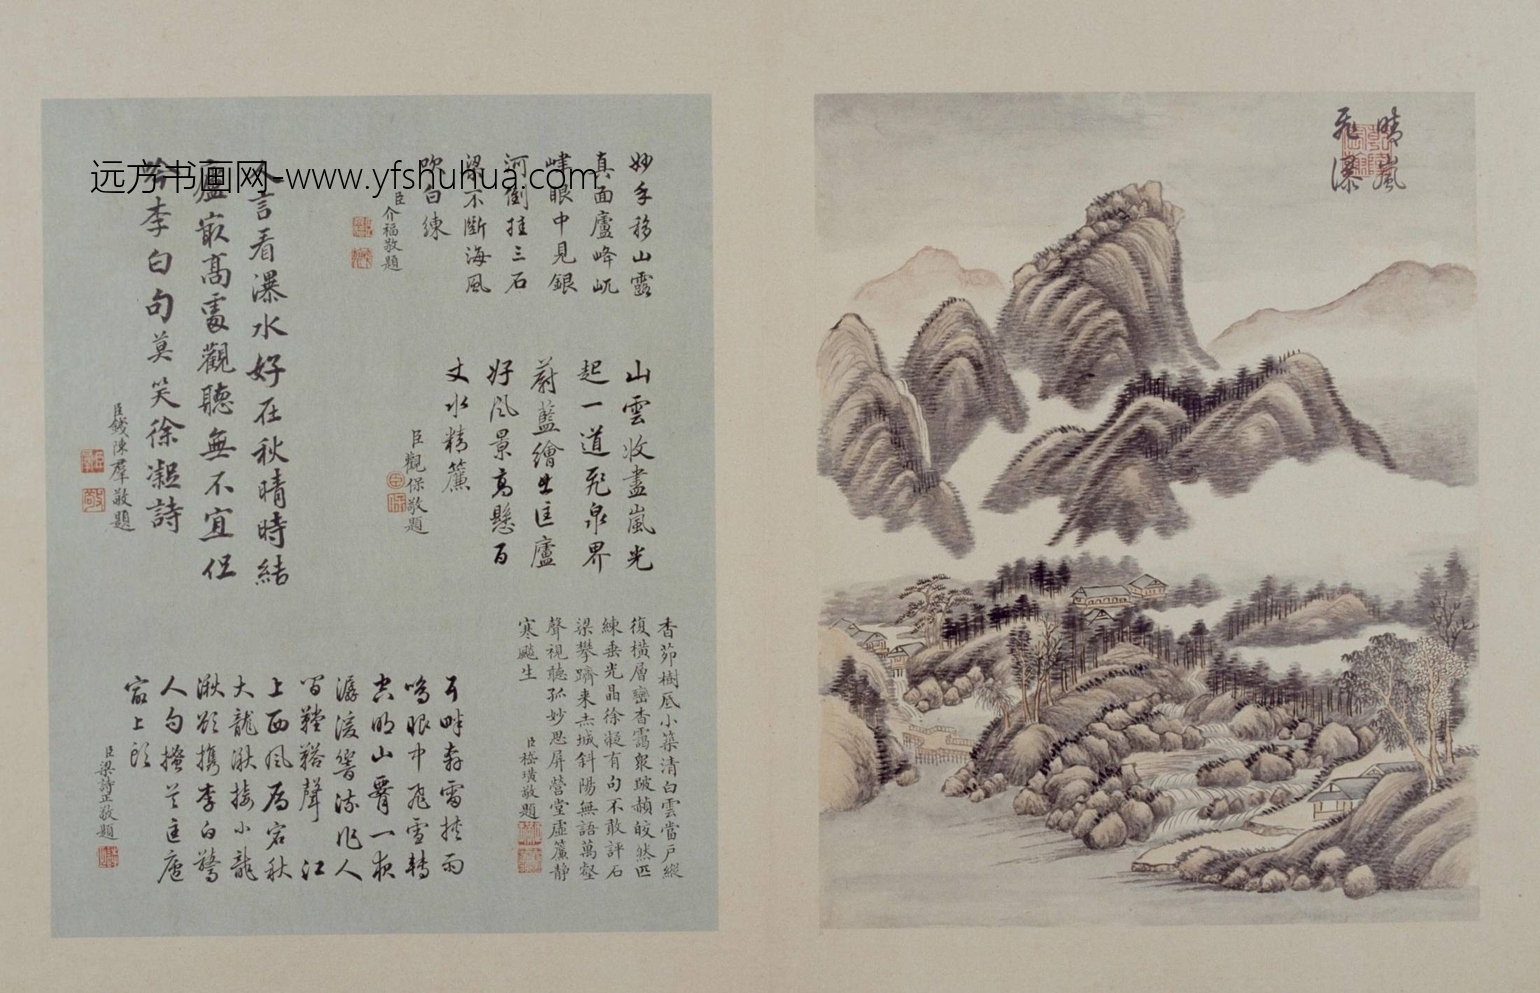 远方书画网-www.yfshuhua.com
晴嵐
飛瀑
妙手移山露
真面廬峰屼
嵂眼中見銀
河倒挂三石
梁不斷海風
吹白練
臣介福敬題
山雲收盡嵐光
起一道飛泉界
蔚藍繪出匡廬
好風景高懸百
丈水精簾
臣觀保敬題
香茆樹底小築清白雲當戶縱
復橫層巒香靄泉玻赬皎然匹
練垂光晶徐凝有句不敢評石
梁攀躋來赤城斜陽無語萬壑
聲視聽孤妙思屏營堂虛簾靜
寒飈生
臣嵇璜敬題
人言看瀑水好在秋晴時結
廬嵌高處觀聽無不宜但
吟李白句莫笑徐凝詩
臣錢陳羣敬題
耳畔奔雷挾雨
鳴眼中飛雪轉
空明山一夜
潺湲響流作人
間鞺鞳聲 江
上西風宕秋
大龍湫接小龍
湫欲攜李白驚
人句匡廬
最上頭
臣梁詩正敬題